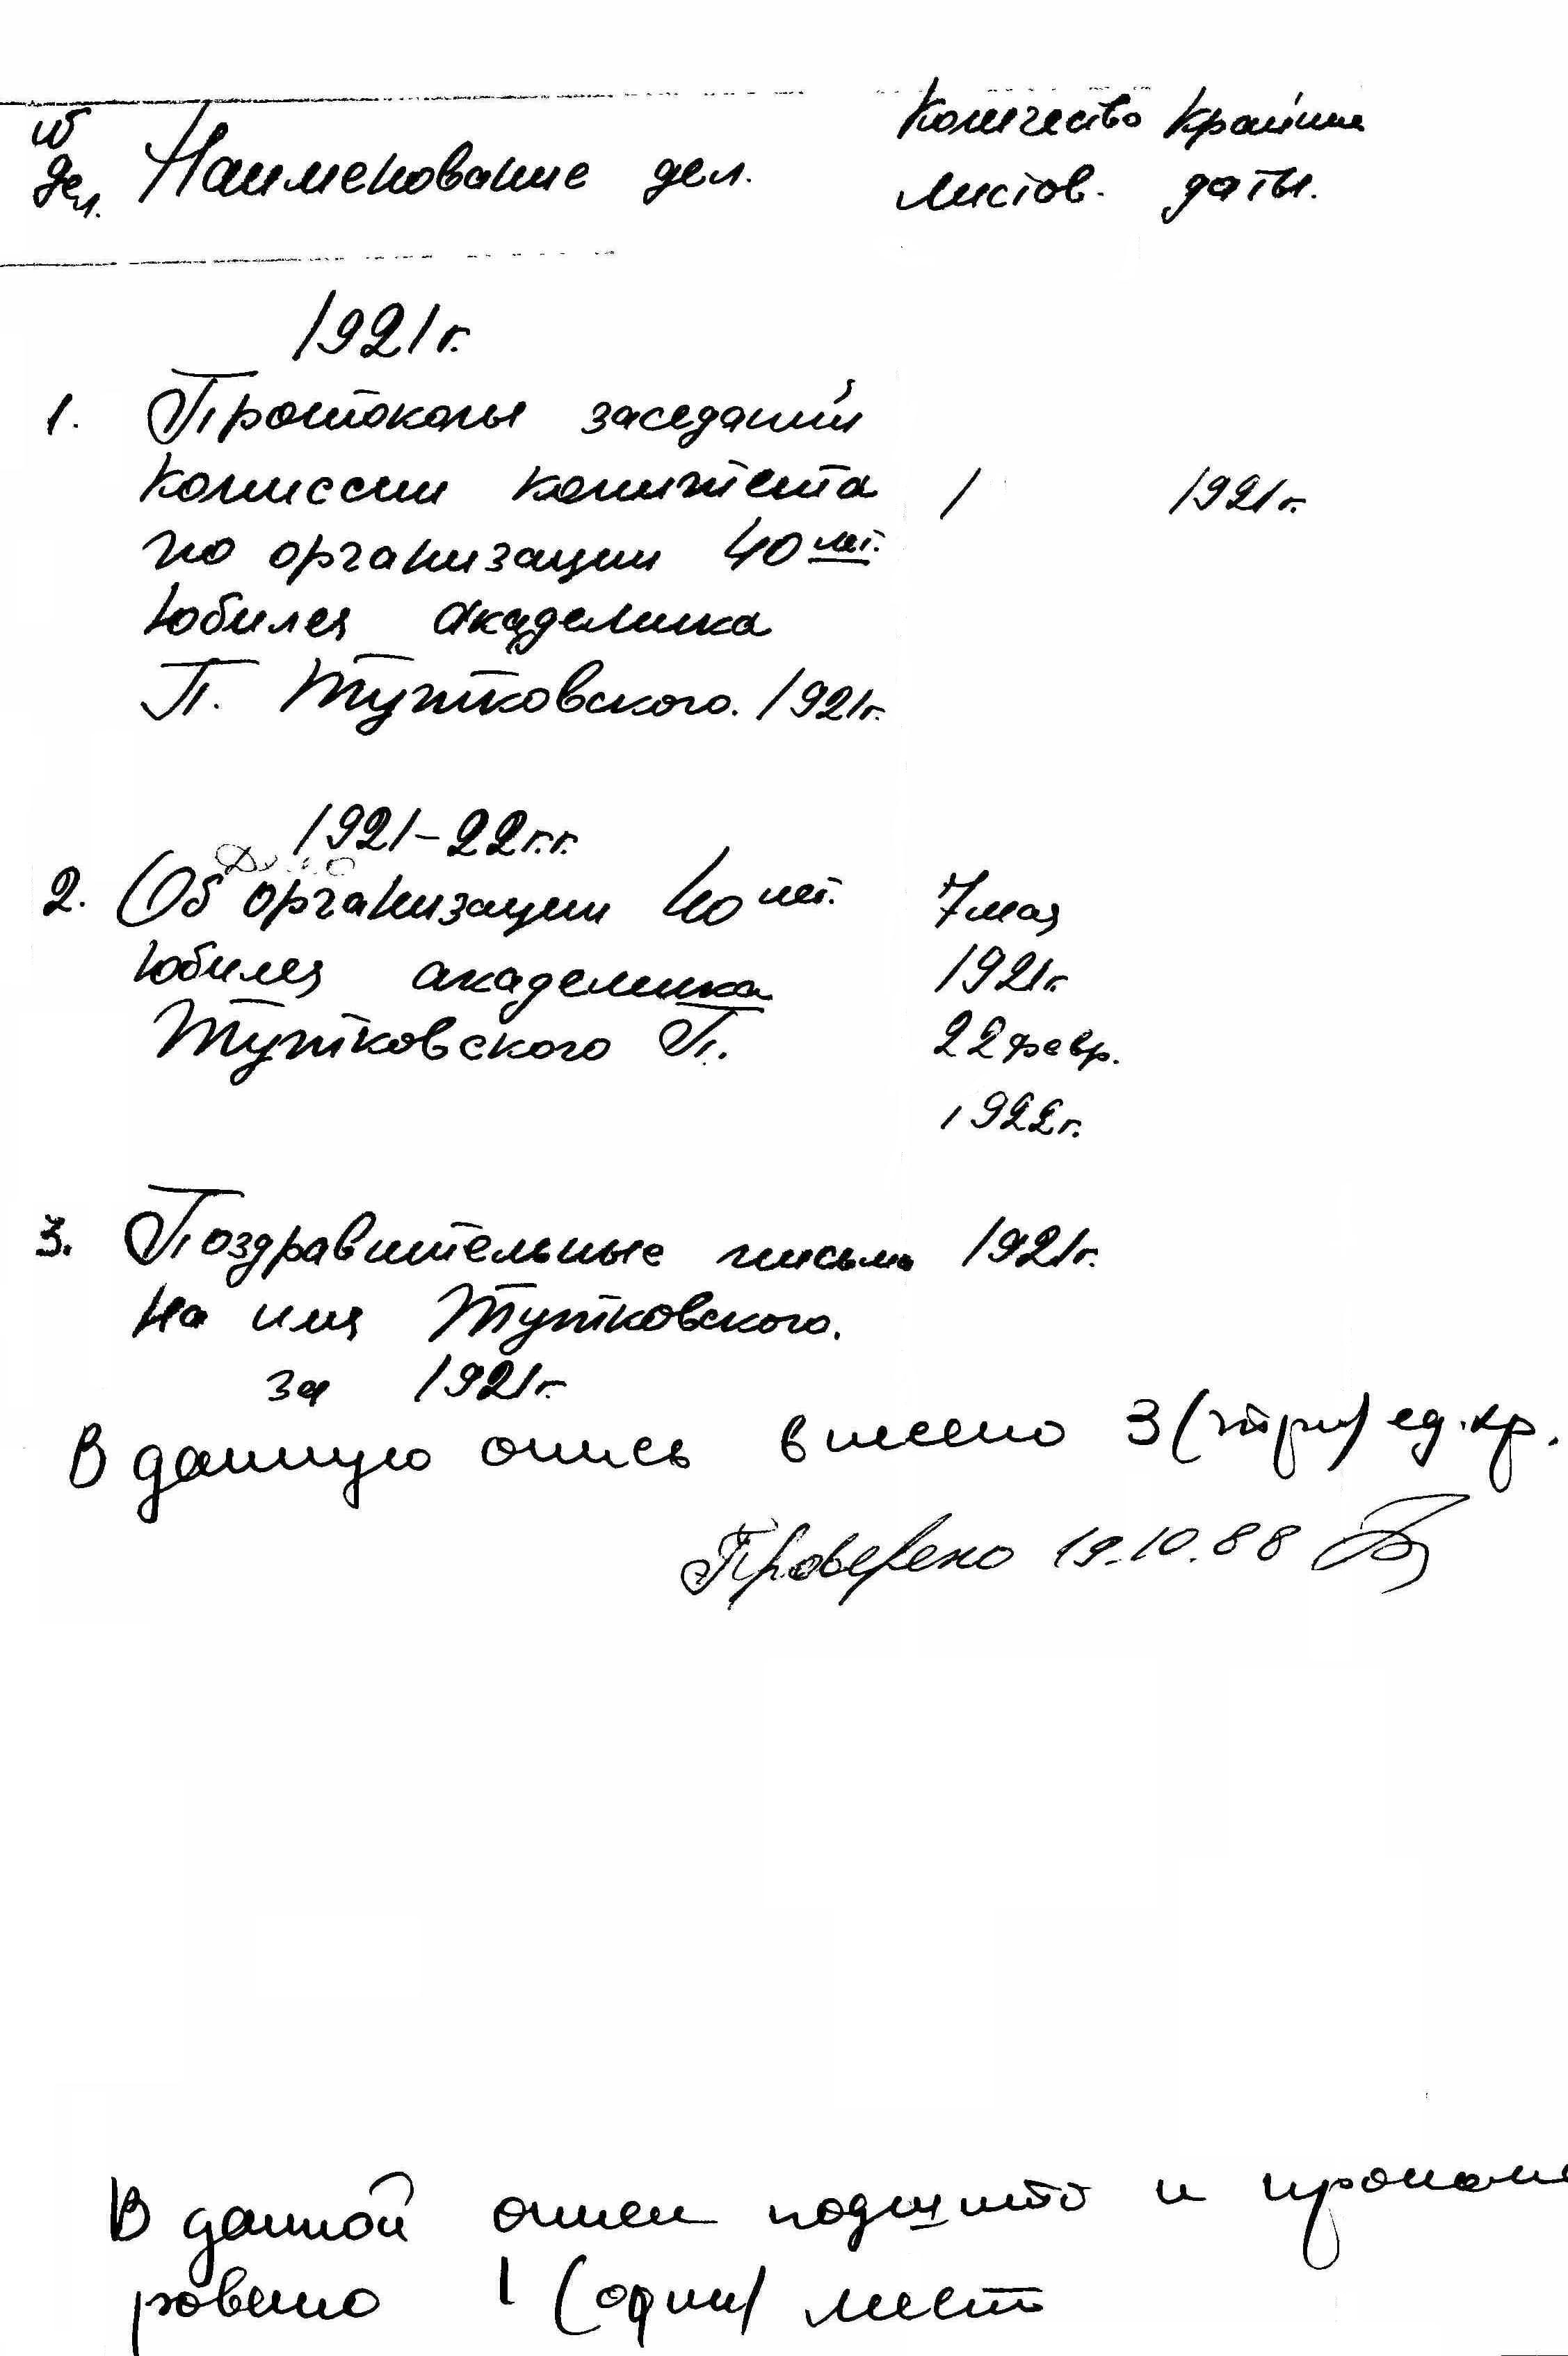 № дел. Наименование дел. Количество листов. Крайние даты.
1921г.
1. Протоколы заседаний
комиссии комитета 1 1921г.
по организации 40 лет.
юбилея академика
П. Тутковского. 1921г.
1921-22г.г.
2. Об организации 40 лет. 7 мая
юбилея академика 1921г.
Тутковского П. 22 февр.
1922г.
3. Поздравительные письма 1921г.
на имя Тутковского.
за 1921г.
В данную опись внесено 3 (три) ед. хр.
Проверено 19.10.88
В данной описи подшито и прономе
ровано 1 (один) лист